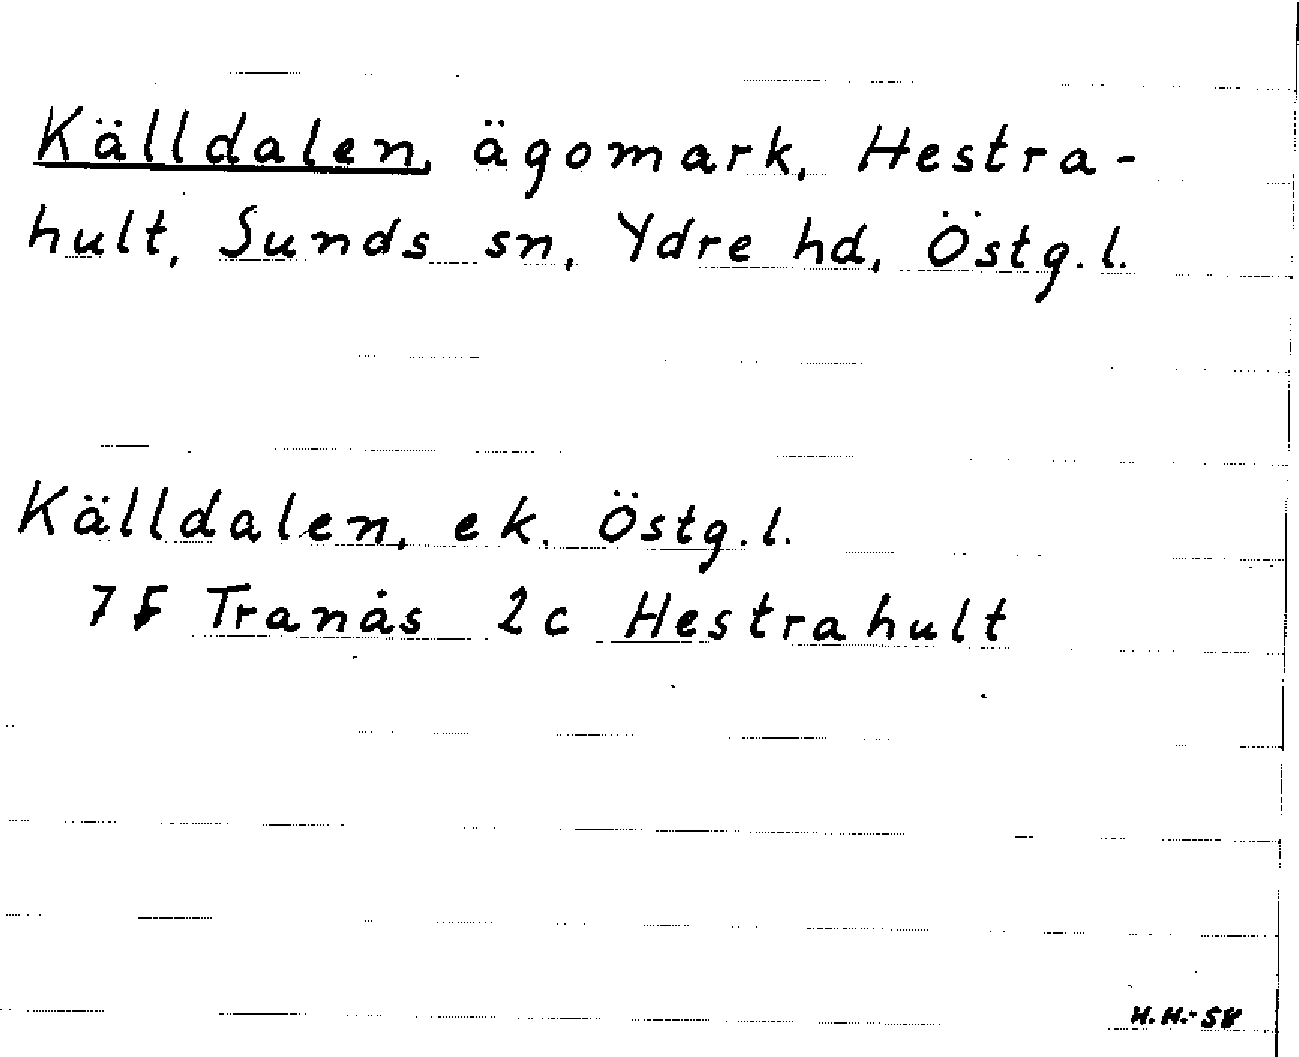 Källdalen, ägomark, Hestra-
hult, Sunds sn, Ydre hd, Östg.l.
Källdalen, ek. Östg.l.
7F Tranås 2c Hestrahult
H.H.-58